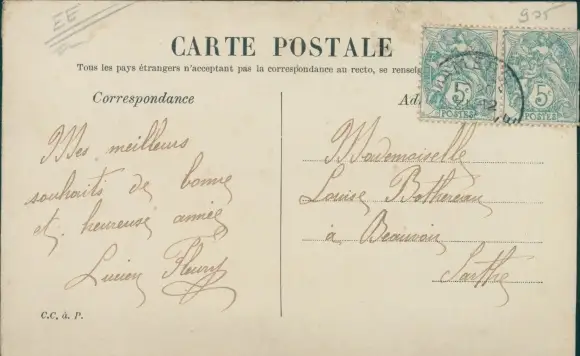 EE
925
CARTE POSTALE
Tous les pays étrangers n'acceptant pas la correspondance au recto, se renseig
Correspondance
Ad
5c
POSTES
5c
POSTES
Mes meilleurs
souhaits de bonne
et heureuse année
Lucien Fleury
Mademoiselle
Louise Bothereau
à Beauvoir
Sarthe
C.C, à. P.